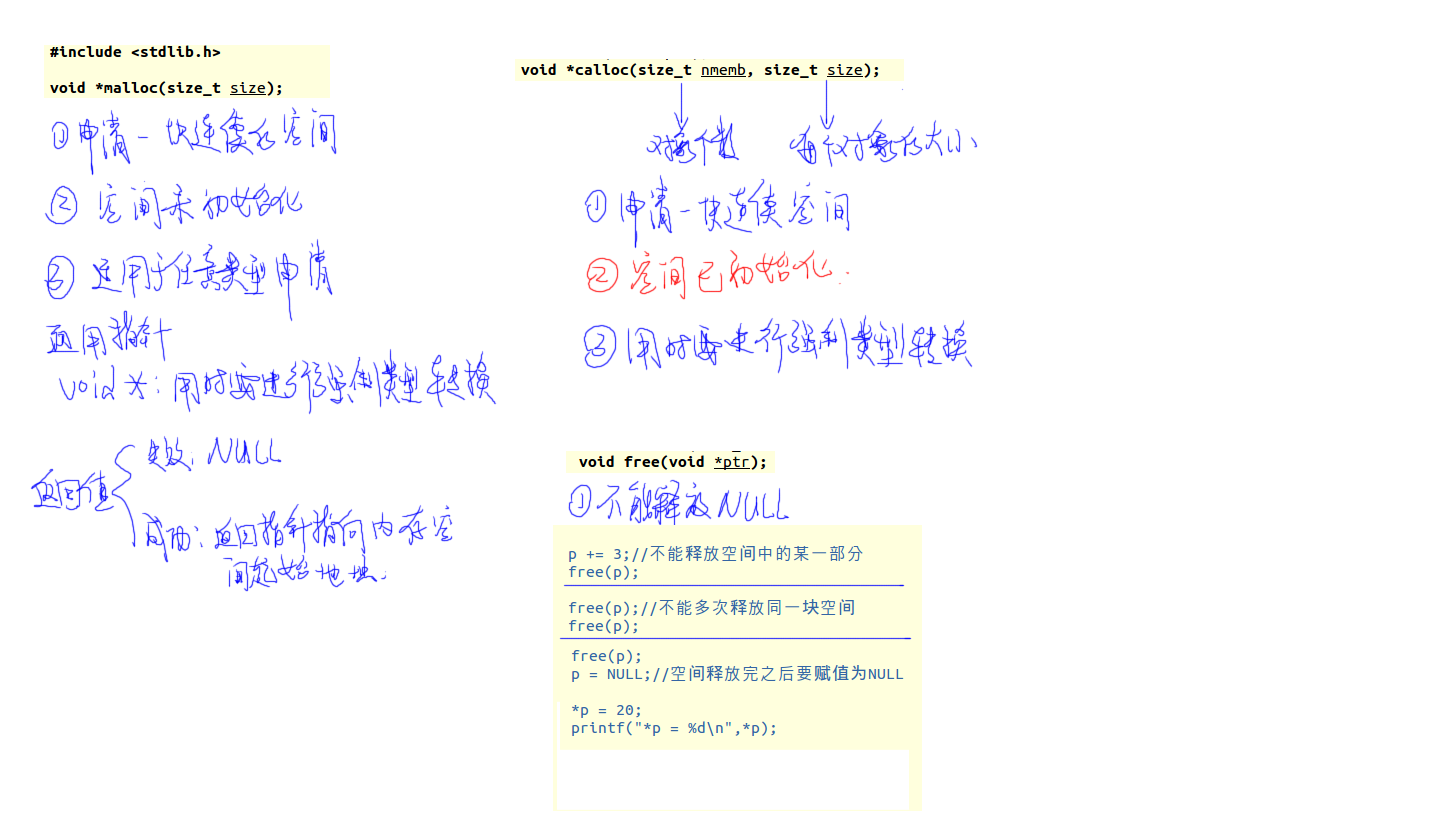 #include <stdlib.h>
void *malloc(size_t size);
①申请一块连续的空间
②空间未初始化
③适用于任意类型申请
通用指针
void *：用时需进行强制类型转换
返回值
失败：NULL
成功：返回指针指向内存空
间起始地址.
void *calloc(size_t nmemb, size_t size);
对象个数 每个对象的大小
①申请一块连续空间
②空间已初始化.
③用时要进行强制类型转换
void free(void *ptr);
①不能释放NULL
p += 3;//不能释放空间中的某一部分
free(p);
free(p);//不能多次释放同一块空间
free(p);
free(p);
p = NULL;//空间释放完之后要赋值为NULL
*p = 20;
printf("*p = %d\n",*p);